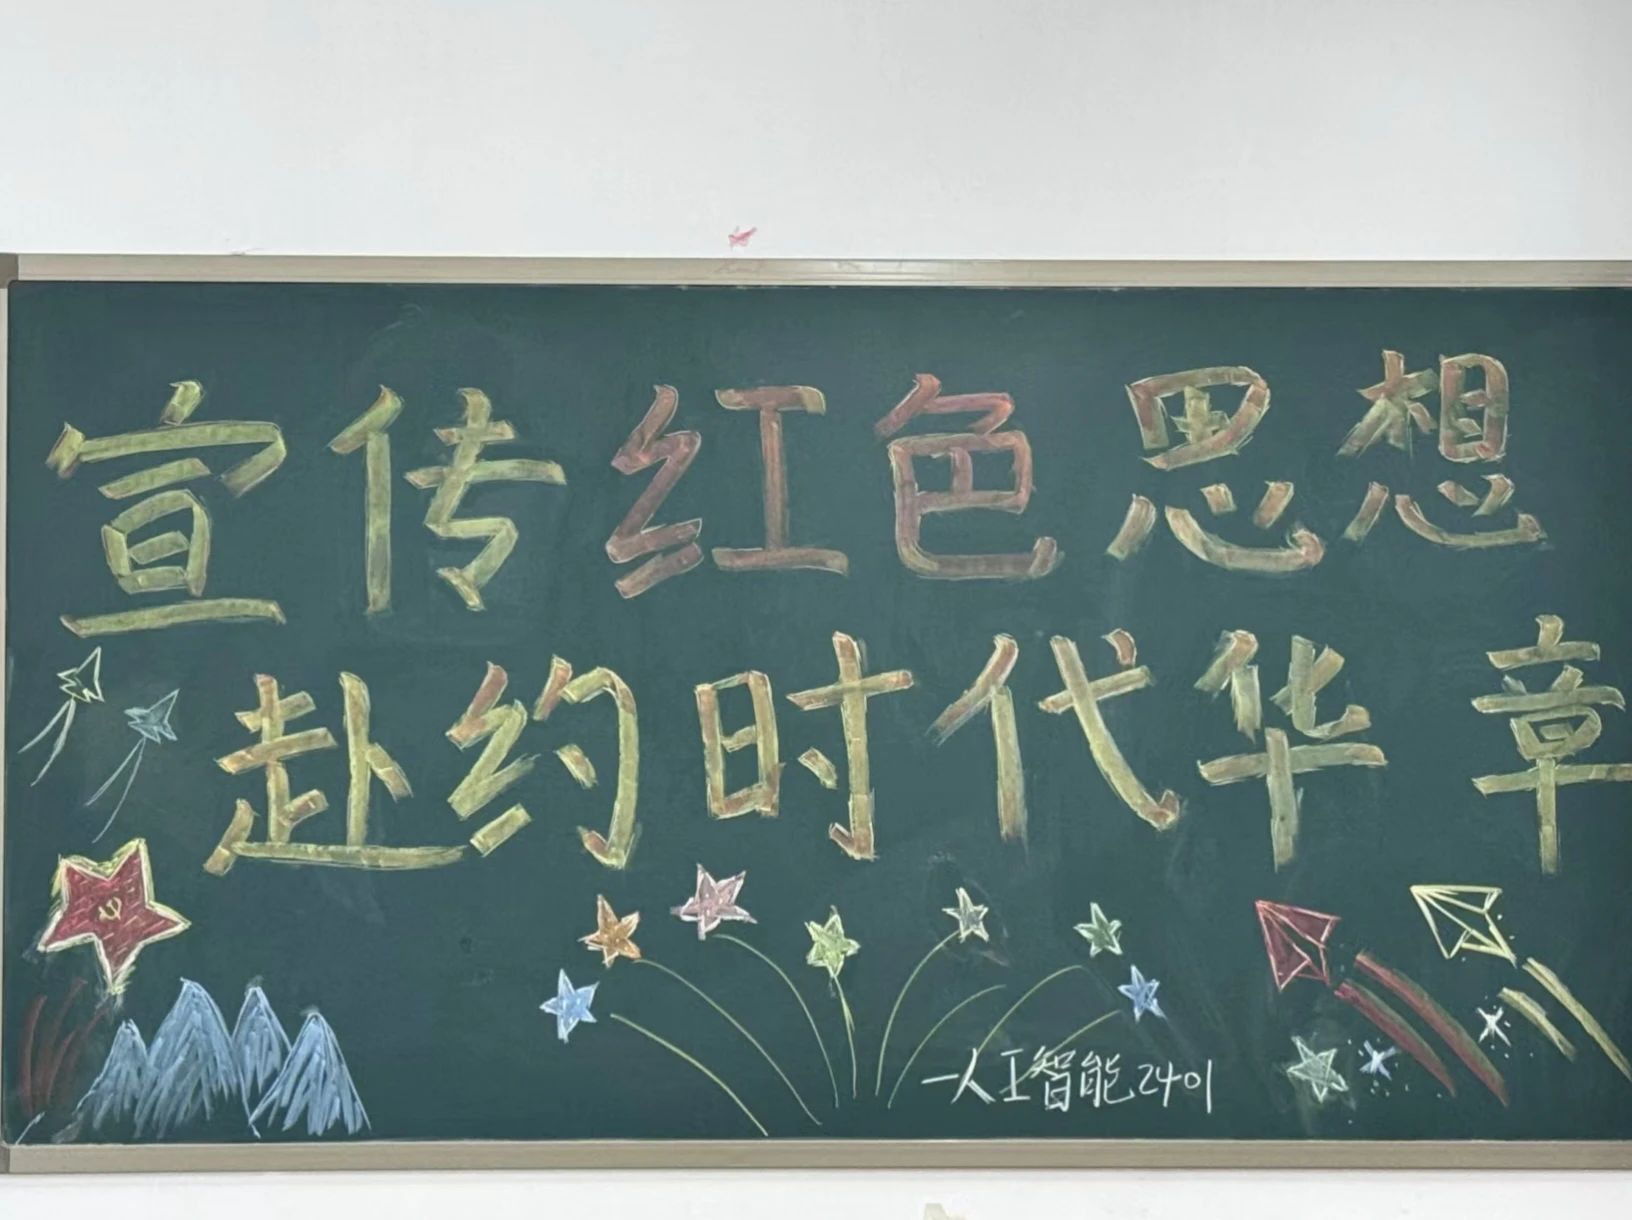 宣传红色思想
赴约时代华章
一人工智能2401